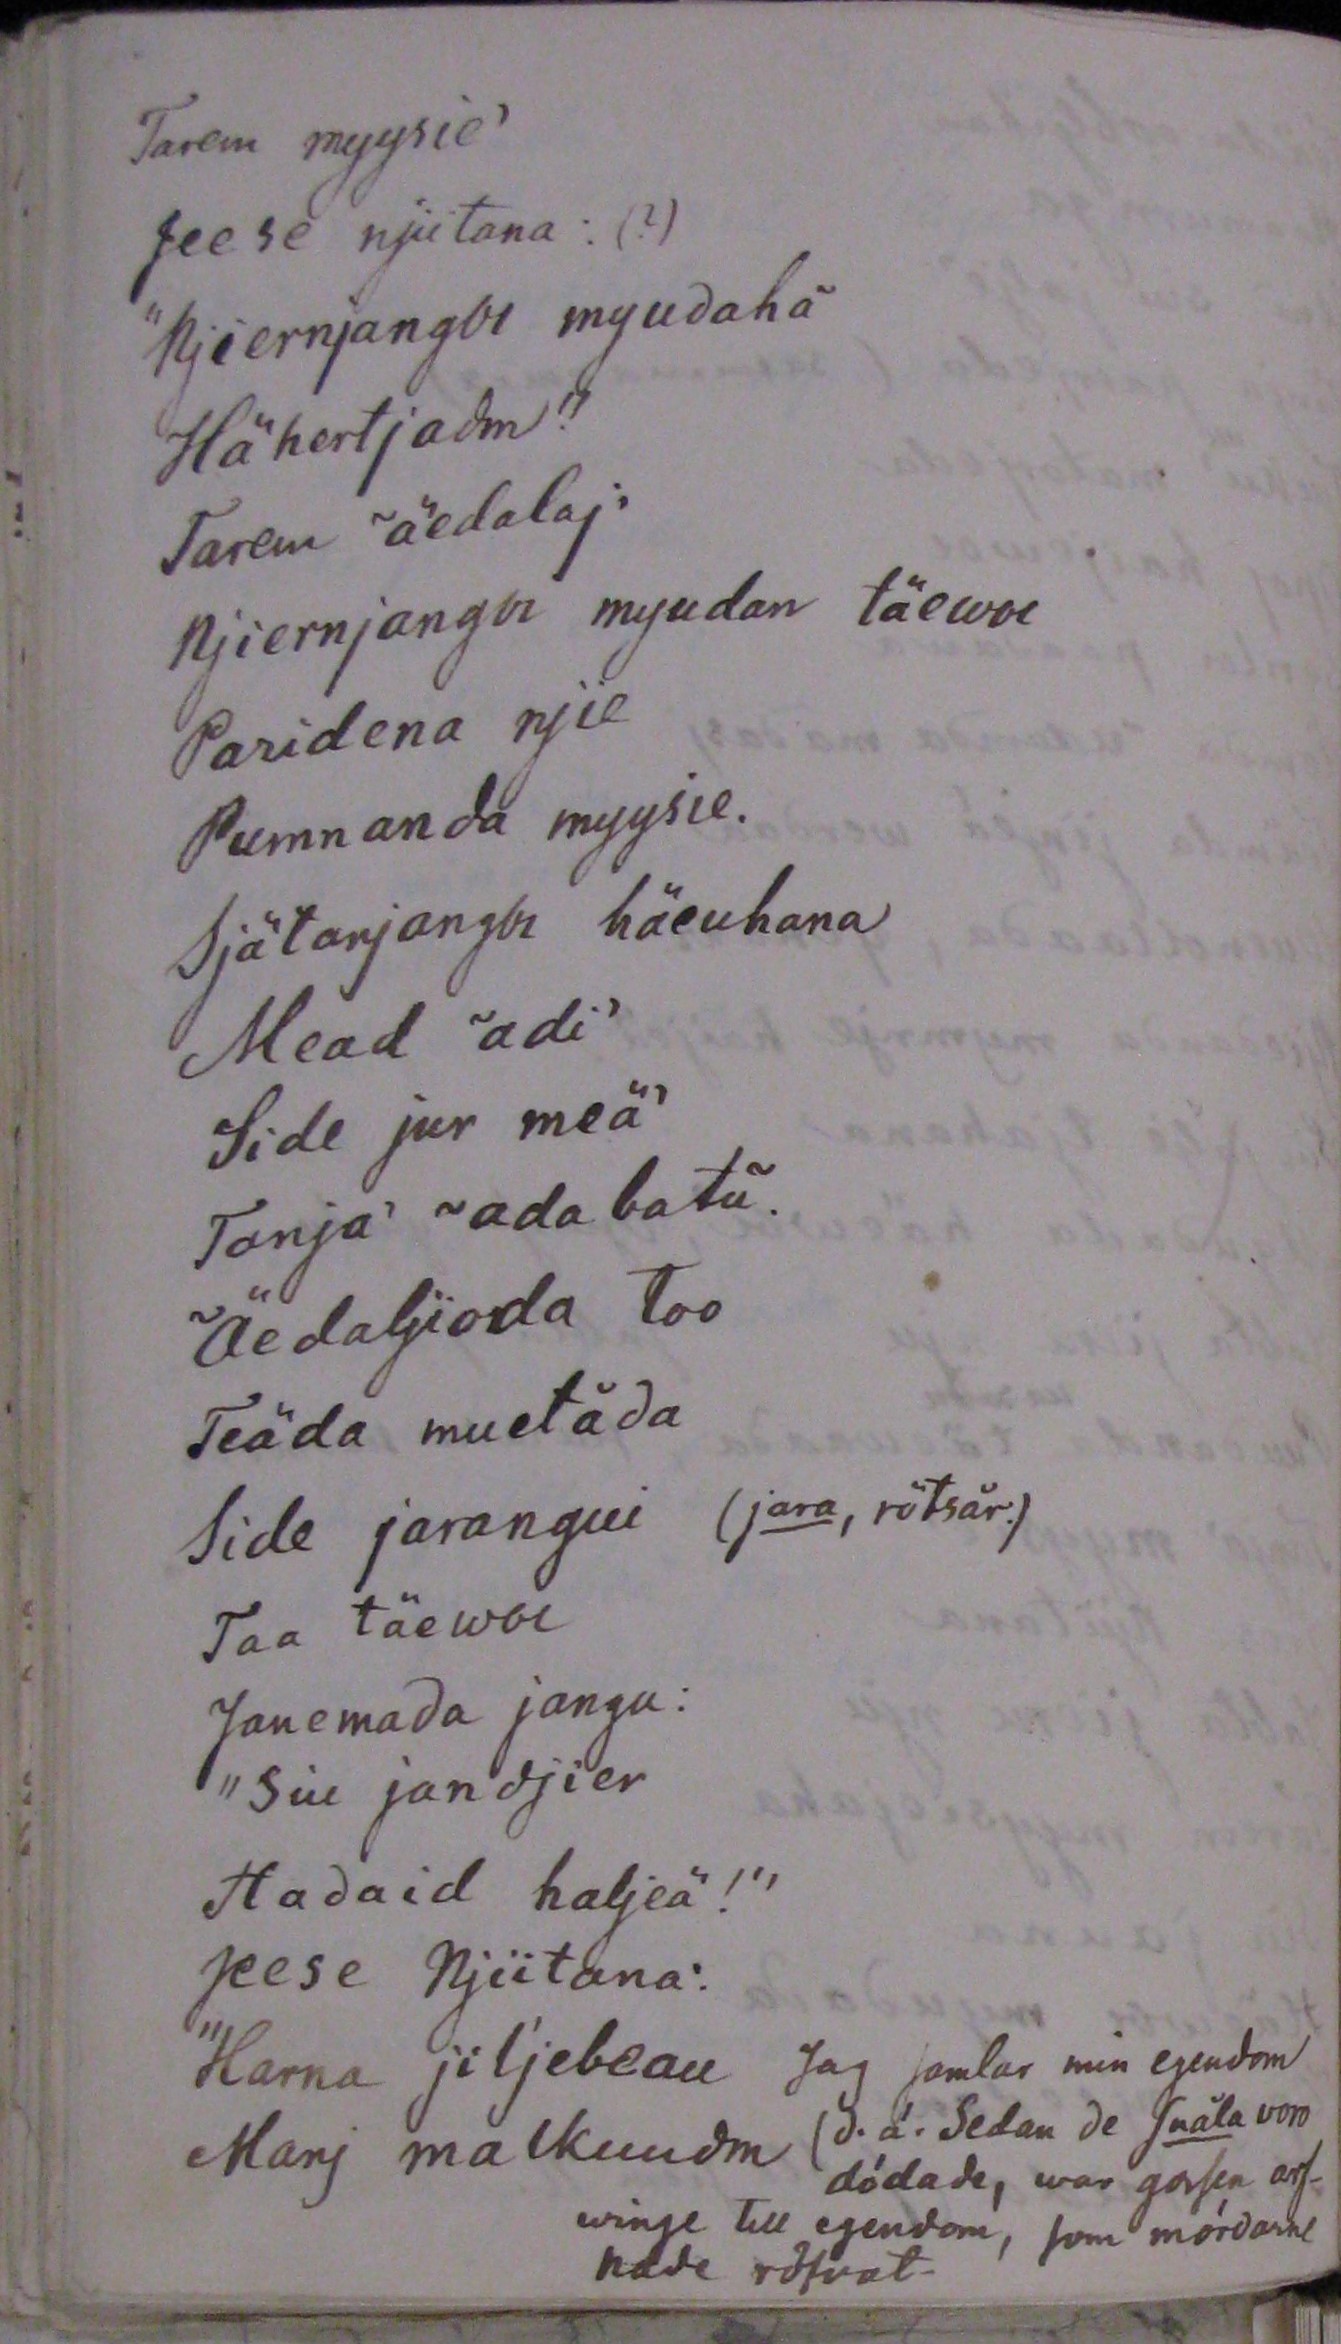 Tarem myysie'
Jeese njiitana: (?)
"Njiernjangbi myudahã
Hähertjadm"
Tarem ˜äedalaj'
Njiernjangbi myudan täewbi
Paridena njie
Pumnanda myysie.
Sjätanjangbi häeuhana
Mead ˜adi'
Side jur meä'
Tanja' ˜adabatũ.
˜Äedaljioda too
Teäda muetäda
Side jarangui (jara, rötsår.)
Taa täewbi
Janemada jangu:
"Siu jandjier
Hadaid haljeä!"
Jeese Njiitana:
"Harna jiljebeau Jag samlar min egendom
Manj malkuudm (d. ä. Sedan de snåla voro
dödade, war gossen arf-
winge till egendom, som mördarne
hade röfvat-